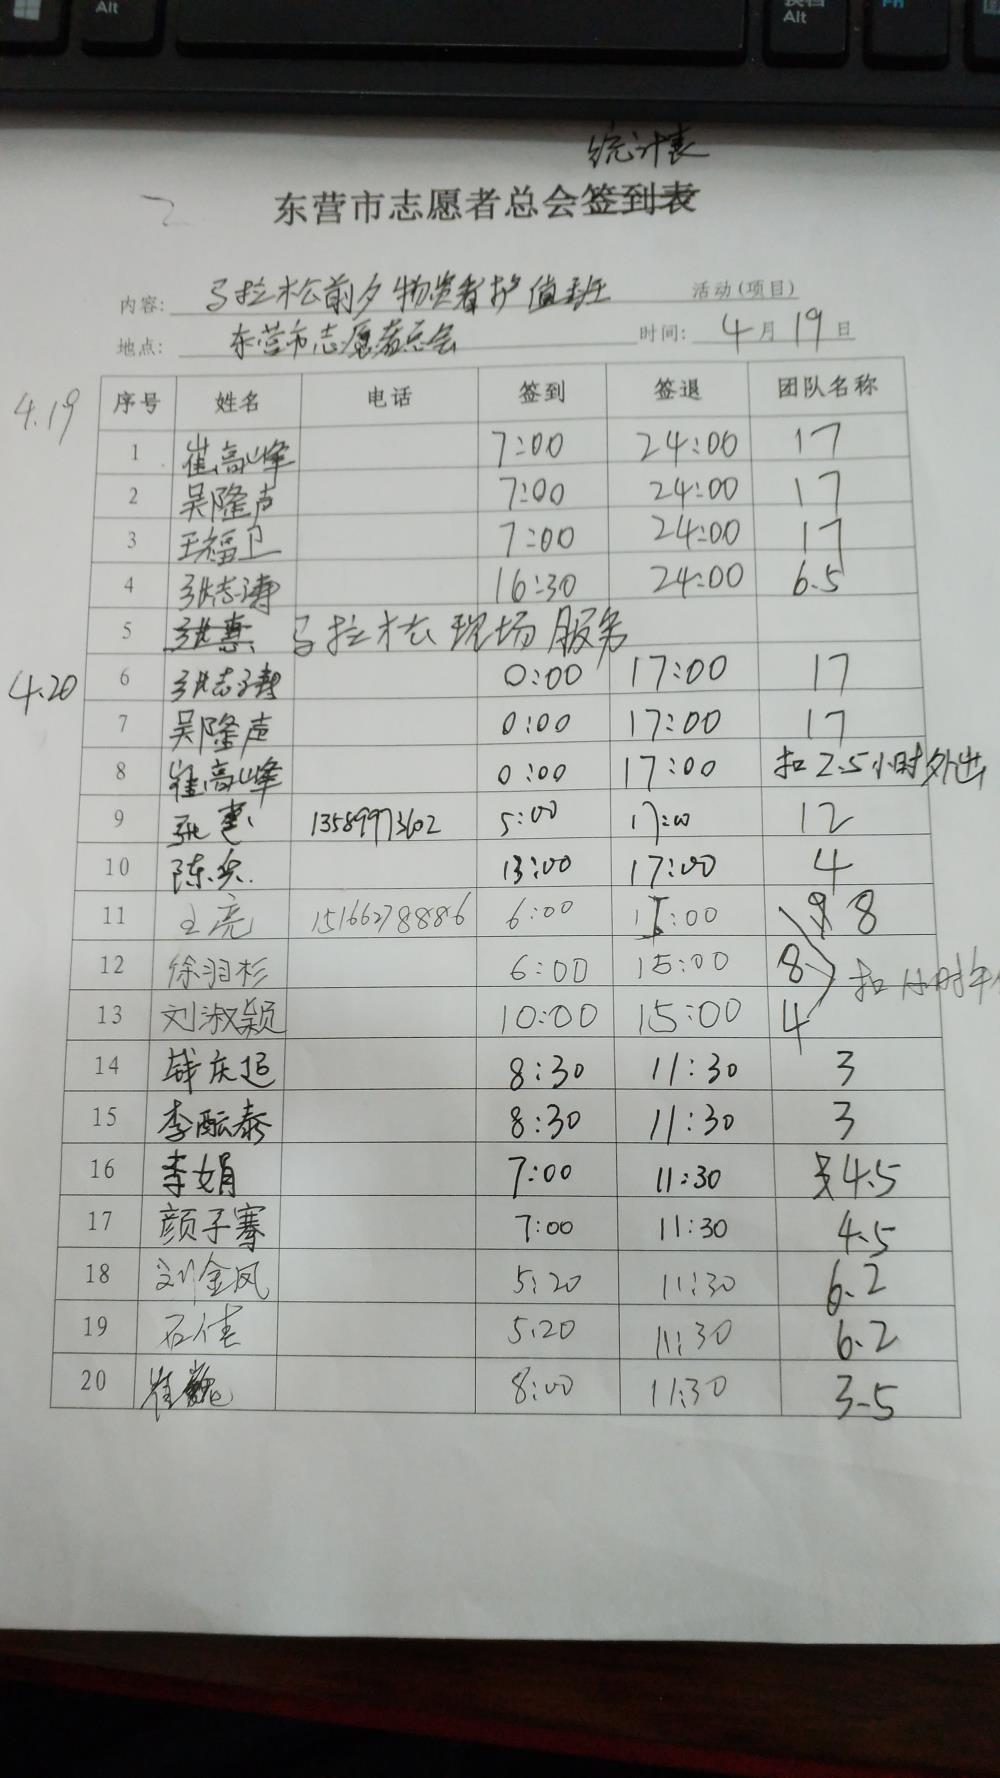 Alt
Alt
Fn
统计表
东营市志愿者总会签到表
内容: 马拉松前夕物资看护值班 活动(项目)
地点: 东营市志愿者总会 时间: 4月19日
4.19
序号 姓名 电话 签到 签退 团队名称
1 崔高峰 7:00 24:00 17
2 吴隆声 7:00 24:00 17
3 王福卫 7:00 24:00 17
4 张志涛 16:30 24:00 6.5
5 张惠 马拉松现场服务
4.20
6 张志涛 0:00 17:00 17
7 吴隆声 0:00 17:00 17
8 崔高峰 0:00 17:00 扣2.5小时外出
9 张惠 13589973602 5:00 17:00 12
10 陈 13:00 17:00 4
11 王亮 15166278886 6:00 15:00 9 8
12 徐羽杉 6:00 15:00 8 扣1小时午
13 刘淑颖 10:00 15:00 4
14 韩庆超 8:30 11:30 3
15 李酝泰 8:30 11:30 3
16 李娟 7:00 11:30 4.5
17 颜子骞 7:00 11:30 4.5
18 刘金凤 5:20 11:30 6.2
19 石佳 5:20 11:30 6.2
20 崔巍 8:00 11:30 3.5